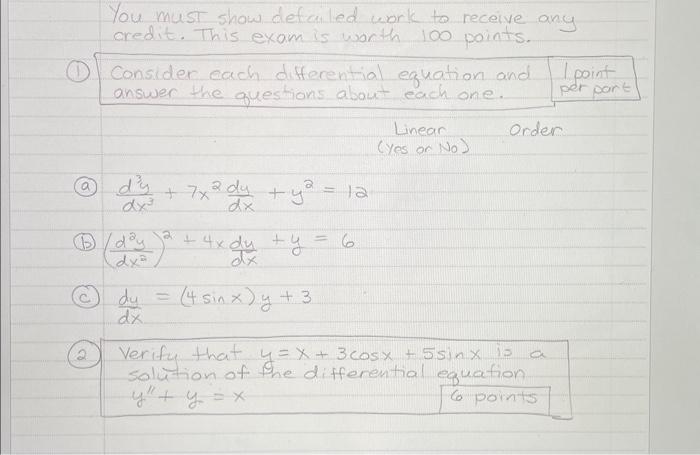 You must show detailed work to receive any
credit. This exam is worth 100 points.
① Consider each differential equation and
answer the questions about each one.
1 point
per part
Linear
(Yes or No)
Order
ⓐ d³y/dx³ + 7x² dy/dx + y² = 12
ⓑ (d²y/dx²)² + 4x dy/dx + y = 6
ⓒ dy/dx = (4 sin x) y + 3
② Verify that y = x + 3cosx + 5sinx is a
solution of the differential equation
y'' + y = x
6 points